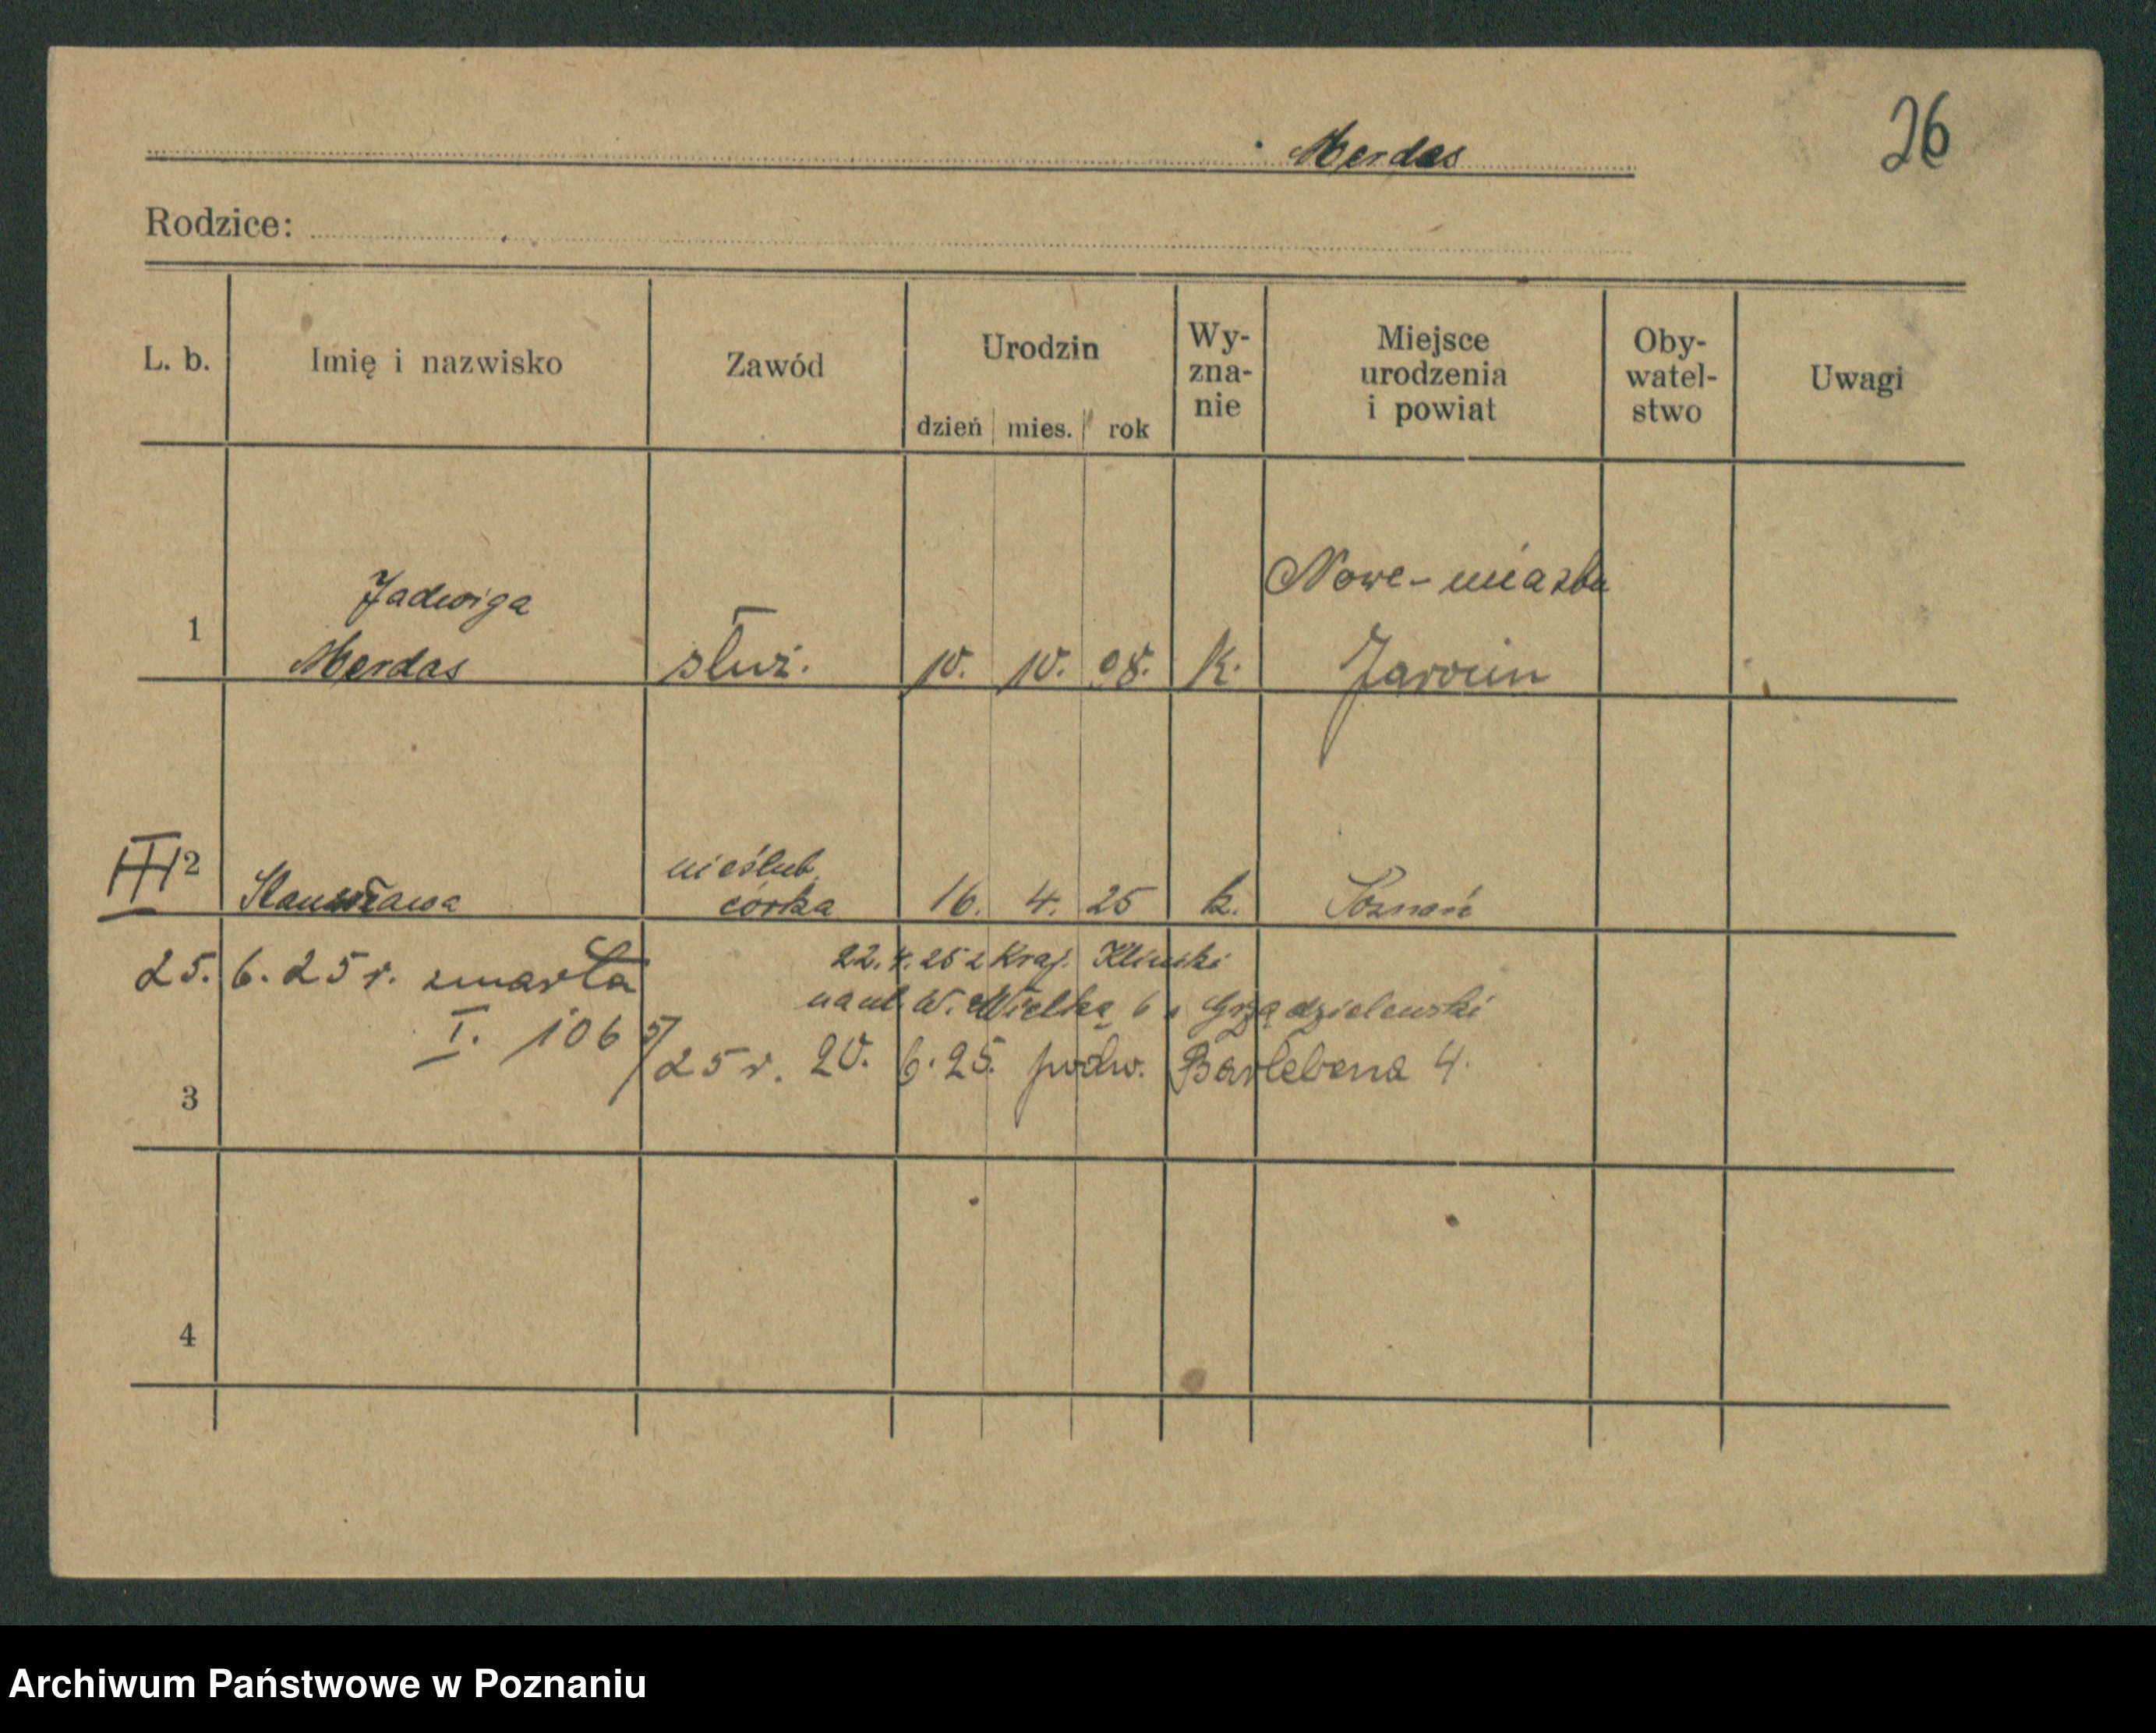 Merdas
26
Rodzice:
L. b. Imię i nazwisko Zawód Urodzin dzień mies. rok Wy-zna-nie Miejsce urodzenia i powiat Oby-watel-stwo Uwagi
Jadwiga Nowe-miasto
1 Merdas służ. 10. 10. 08. K. Jarocin
nieślub.
2 Stanisława córka 16. 4. 25 k. Poznań
22. 4. 25 z Kraj. Kliniki
25. 6. 25 r. zmarła
na ul. W. Wielką 6 Grządzielewski
I. 1065/25 r. 20. 6. 25. podw. Barlebena 4.
3
4
Archiwum Państwowe w Poznaniu